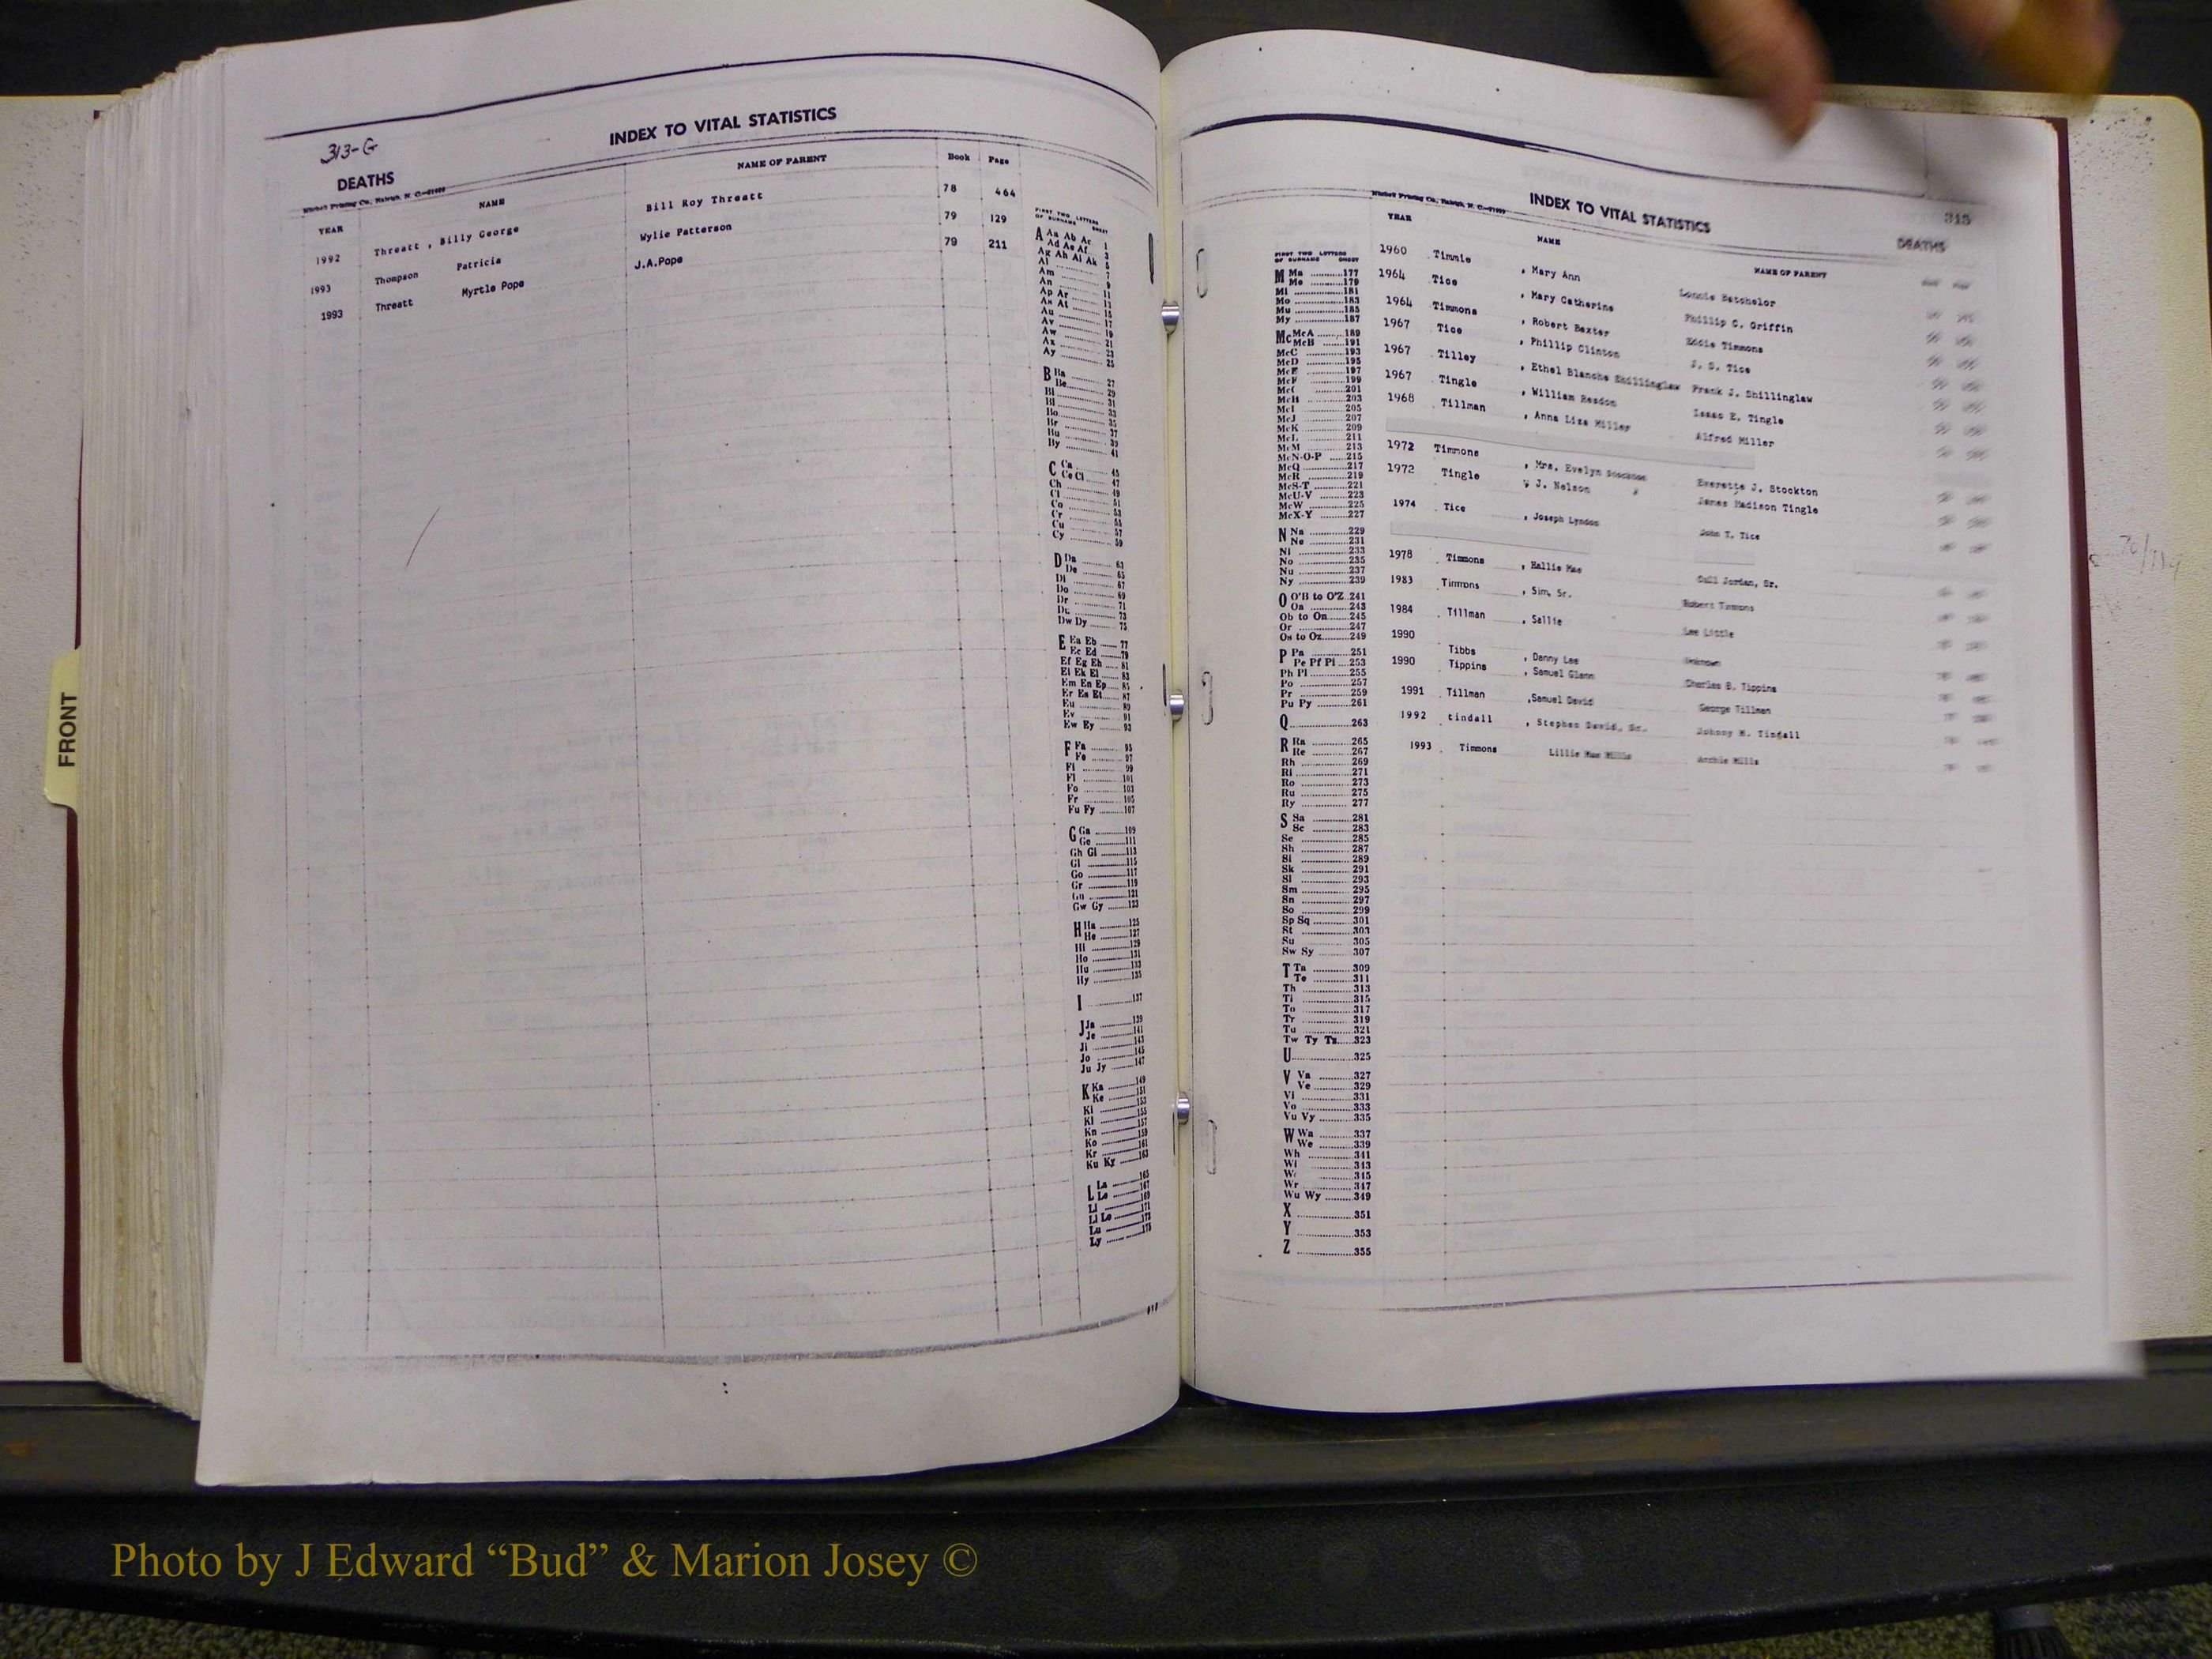 313-G
INDEX TO VITAL STATISTICS
DEATHS
NAME OF PARENT Book Page
YEAR NAME
1992 Threatt , Billy George Bill Roy Threatt 78 464
1993 Thompson Patricia Wylie Patterson 79 129
1993 Threatt Myrtle Pope J.A.Pope 79 211
FIRST TWO LETTERS
OF SURNAME SHEET
A Aa Ab Ac 1
Ad Ae Af 3
Ag Ah Ai Ak 5
Al 7
Am 9
An 11
Ap Ar 13
As At 15
Au 17
Av 19
Aw 21
Ax 23
Ay 25
B Ba 27
Be 29
Bi 31
Bl 33
Bo 35
Br 37
Bu 39
By 41
C Ca 45
Ce Ci 47
Ch 49
Cl 51
Co 53
Cr 55
Cu 57
Cy 59
D Da 63
De 65
Di 67
Do 69
Dr 71
Du 73
Dw Dy 75
E Ea Eb 77
Ec Ed 79
Ef Eg Eh 81
Ei Ek El 83
Em En Ep 85
Er Es Et 87
Eu 89
Ev 91
Ew Ey 93
F Fa 95
Fe 97
Fi 99
Fl 101
Fo 103
Fr 105
Fu Fy 107
G Ga 109
Ge 111
Gh Gi 113
Gl 115
Go 117
Gr 119
Gu 121
Gw Gy 123
H Ha 125
He 127
Hi 129
Ho 131
Hu 133
Hy 135
I 137
J Ja 139
Je 141
Ji 143
Jo 145
Ju Jy 147
K Ka 149
Ke 151
Ki 153
Kl 155
Kn 157
Ko 159
Kr 161
Ku Ky 163
L La 165
Le 167
Li 169
Ll Lo 171
Lu 173
Ly 175
INDEX TO VITAL STATISTICS 315
DEATHS
YEAR NAME NAME OF PARENT
1960 Timmie , Mary Ann Lonnie Batchelor
1964 Tice , Mary Catherine Phillip C. Griffin
1964 Timmons , Robert Baxter Eddie Timmons
1967 Tice , Phillip Clinton J. S. Tice
1967 Tilley , Ethel Blanche Shillinglaw Frank J. Shillinglaw
1967 Tingle , William Readon Isaac E. Tingle
1968 Tillman , Anna Liza Miller Alfred Miller
1972 Timmons , Mrs. Evelyn Stockton Everette J. Stockton
1972 Tingle , J. Nelson James Madison Tingle
1974 Tice , Joseph Lyndon John T. Tice
1978 Timmons , Hallie Mae Jordan, Sr.
1983 Timmons , Sim, Sr. Robert Timmons
1984 Tillman , Sallie Lee Little
1990 Tibbs , Danny Lee Unknown
1990 Tippins , Samuel Glenn Charles B. Tippins
1991 Tillman ,Samuel David George Tillman
1992 tindall , Stephen David, Sr. Johnny M. Tindall
1993 Timmons Lillie Mae Mills Archie Mills
FIRST TWO LETTERS
OF SURNAME SHEET
M Ma 177
Me 179
Mi 181
Mo 183
Mu 185
My 187
Mc McA 189
McB 191
McC 193
McD 195
McE 197
McF 199
McG 201
McH 203
McI 205
McJ 207
McK 209
McL 211
McM 213
McN-O-P 215
McQ 217
McR 219
McS-T 221
McU-V 223
McW 225
McX-Y 227
N Na 229
Ne 231
Ni 233
No 235
Nu 237
Ny 239
O O'B to O'Z 241
Oa 243
Ob to On 245
Or 247
Os to Oz 249
P Pa 251
Pe Pf Pi 253
Ph Pl 255
Po 257
Pr 259
Pu Py 261
Q 263
R Ra 265
Re 267
Rh 269
Ri 271
Ro 273
Ru 275
Ry 277
S Sa 281
Sc 283
Se 285
Sh 287
Si 289
Sk 291
Sl 293
Sm 295
Sn 297
So 299
Sp Sq 301
St 303
Su 305
Sw Sy 307
T Ta 309
Te 311
Th 313
Ti 315
To 317
Tr 319
Tu 321
Tw Ty Tz 323
U 325
V Va 327
Ve 329
Vi 331
Vo 333
Vu Vy 335
W Wa 337
We 339
Wh 341
Wi 343
345
Wr 347
Wu Wy 349
X 351
Y 353
Z 355
FRONT
Photo by J Edward “Bud” & Marion Josey ©